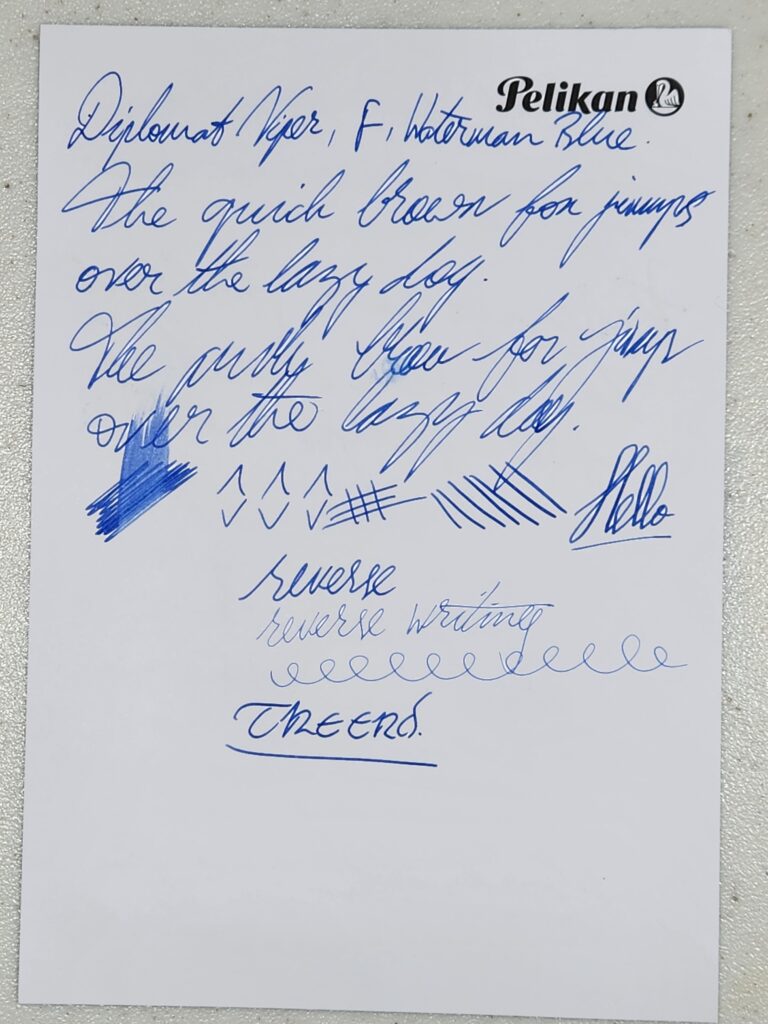 Pelikan
Diplomat Viper, F, Waterman Blue.
The quick brown fox jumps
over the lazy dog.
The brow fox jimp
over the lazy dog.
Hello
reverse
reverse writing